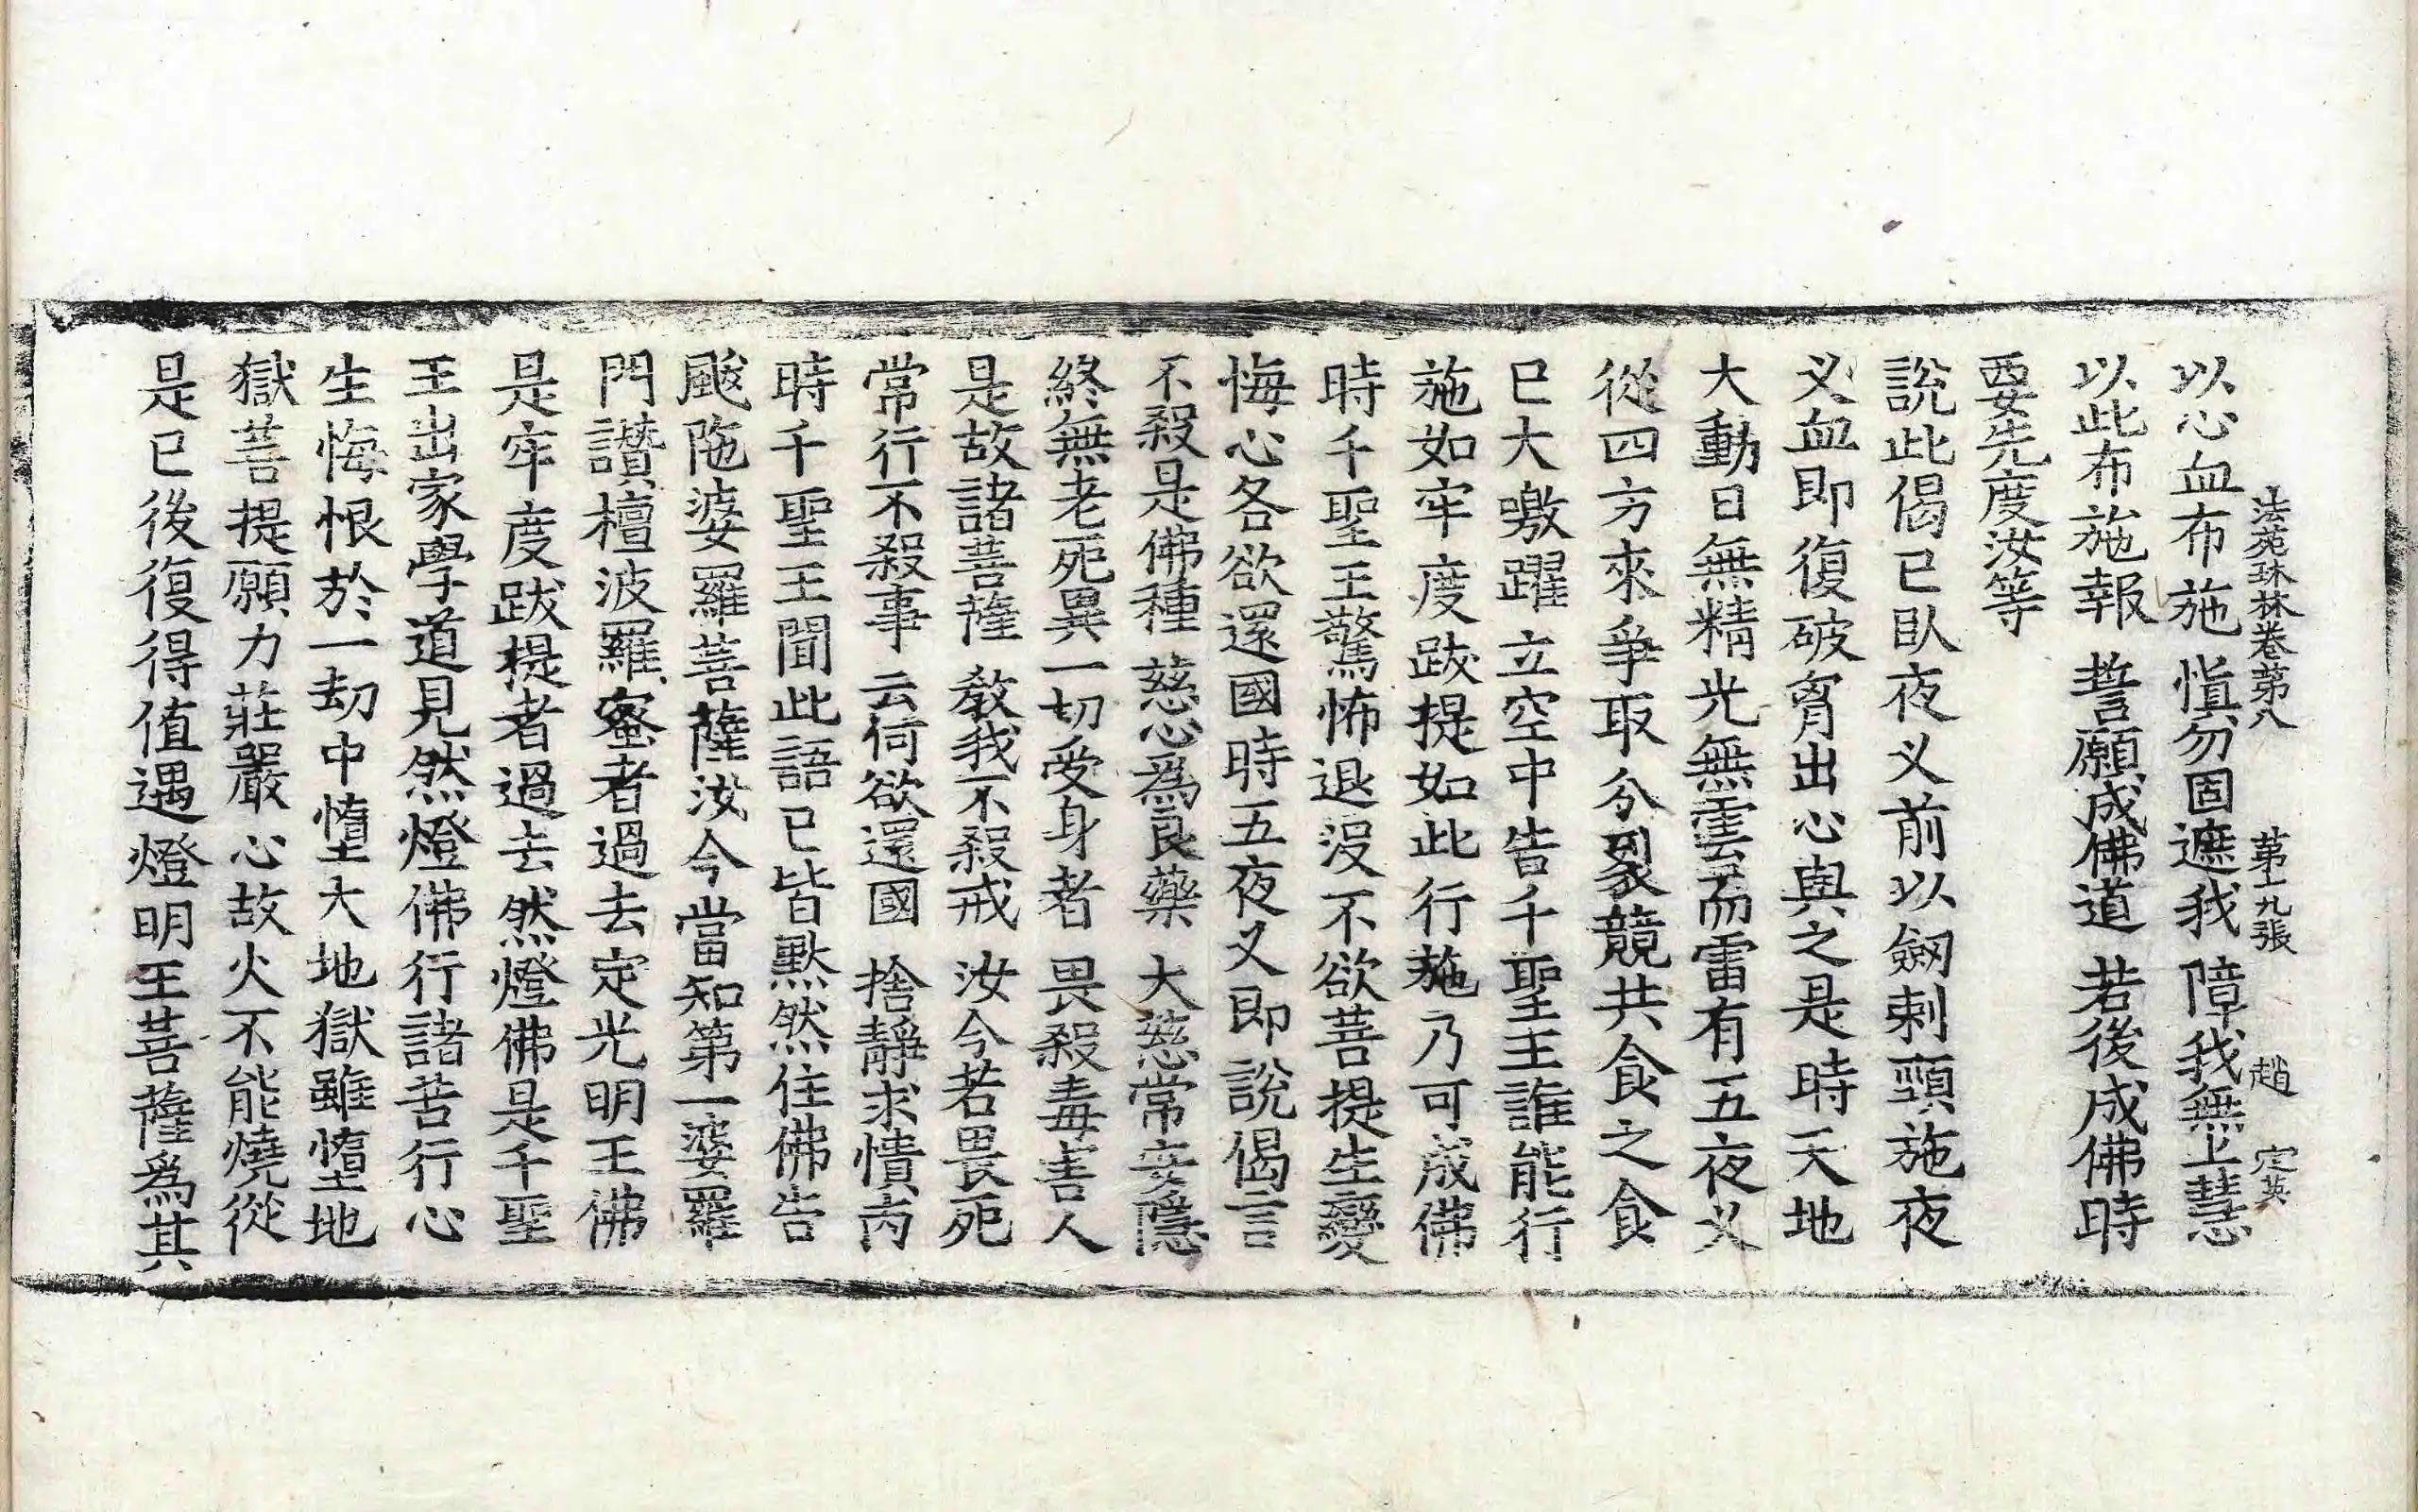 法苑珠林卷第八　第十九張　趙　定英
以心血布施　愼勿固遮我　障我無上慧
以此布施報　誓願成佛道　若後成佛時
要先度汝等
說此偈已臥夜叉前以劒刺頸施夜
叉血即復破胷出心與之是時天地
大動日無精光無雲而雷有五夜叉
從四方來爭取分裂競共食之食
已大噭躍立空中告千聖王誰能行
施如牢度跋提如此行施乃可成佛
時千聖王驚怖退沒不欲菩提生變
悔心各欲還國時五夜叉即說偈言
不殺是佛種　慈心爲良藥　大慈常安隱
終無老死異　一切受身者　畏殺毒害人
是故諸菩薩　敎我不殺戒　汝今若畏死
常行不殺事　云何欲還國　捨靜求憒丙
時千聖王聞此語已皆黙然住佛告
颰陁婆羅菩薩汝今當知第一婆羅
門讃檀波羅蜜者過去定光明王佛
是牢度跋提者過去然燈佛是千聖
王出家學道見然燈佛行諸苦行心
生悔恨於一劫中墮大地獄雖墮地
獄菩提願力莊嚴心故火不能燒從
是已後復得值遇燈明王菩薩爲其